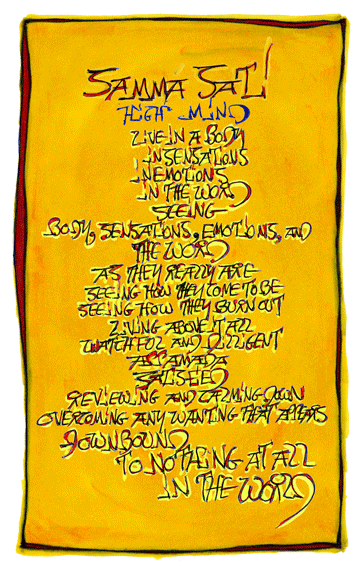 SAMMA SATI
HIGH MIND
LIVE IN A BODY
IN SENSATIONS
IN EMOTIONS
IN THE WORD
SEEING
BODY, SENSATIONS, EMOTIONS, AND
THE WORD
AS THEY REALLY ARE
SEEING HOW THEY COME TO BE
SEEING HOW THEY BURN OUT
LIVING ABOVE IT ALL
WATCHFUL AND DILIGENT
APPAMADA
REVIEWING AND CALMING DOWN
OVERCOMING ANY WANTING THAT APPEARS
DOWNBOUND
TO NOTHING AT ALL
IN THE WORD